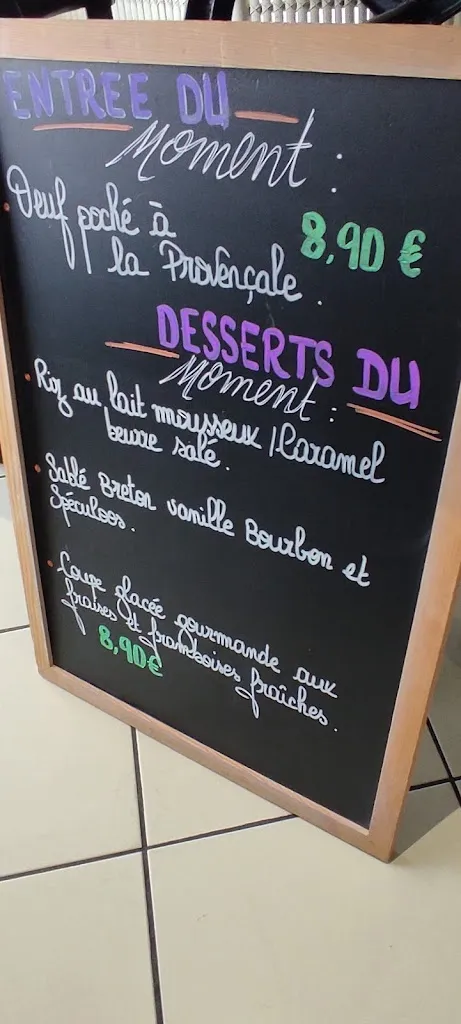 ENTREE DU
Moment :
Oeuf poché à
la Provençale .
8,90 €
DESSERTS DU
Moment :
Riz au lait mousseux / Caramel
beurre salé .
Sablé Breton vanille Bourbon et
Spéculoos .
Coupe glacée gourmande aux
fraises et framboises fraîches .
8,90€